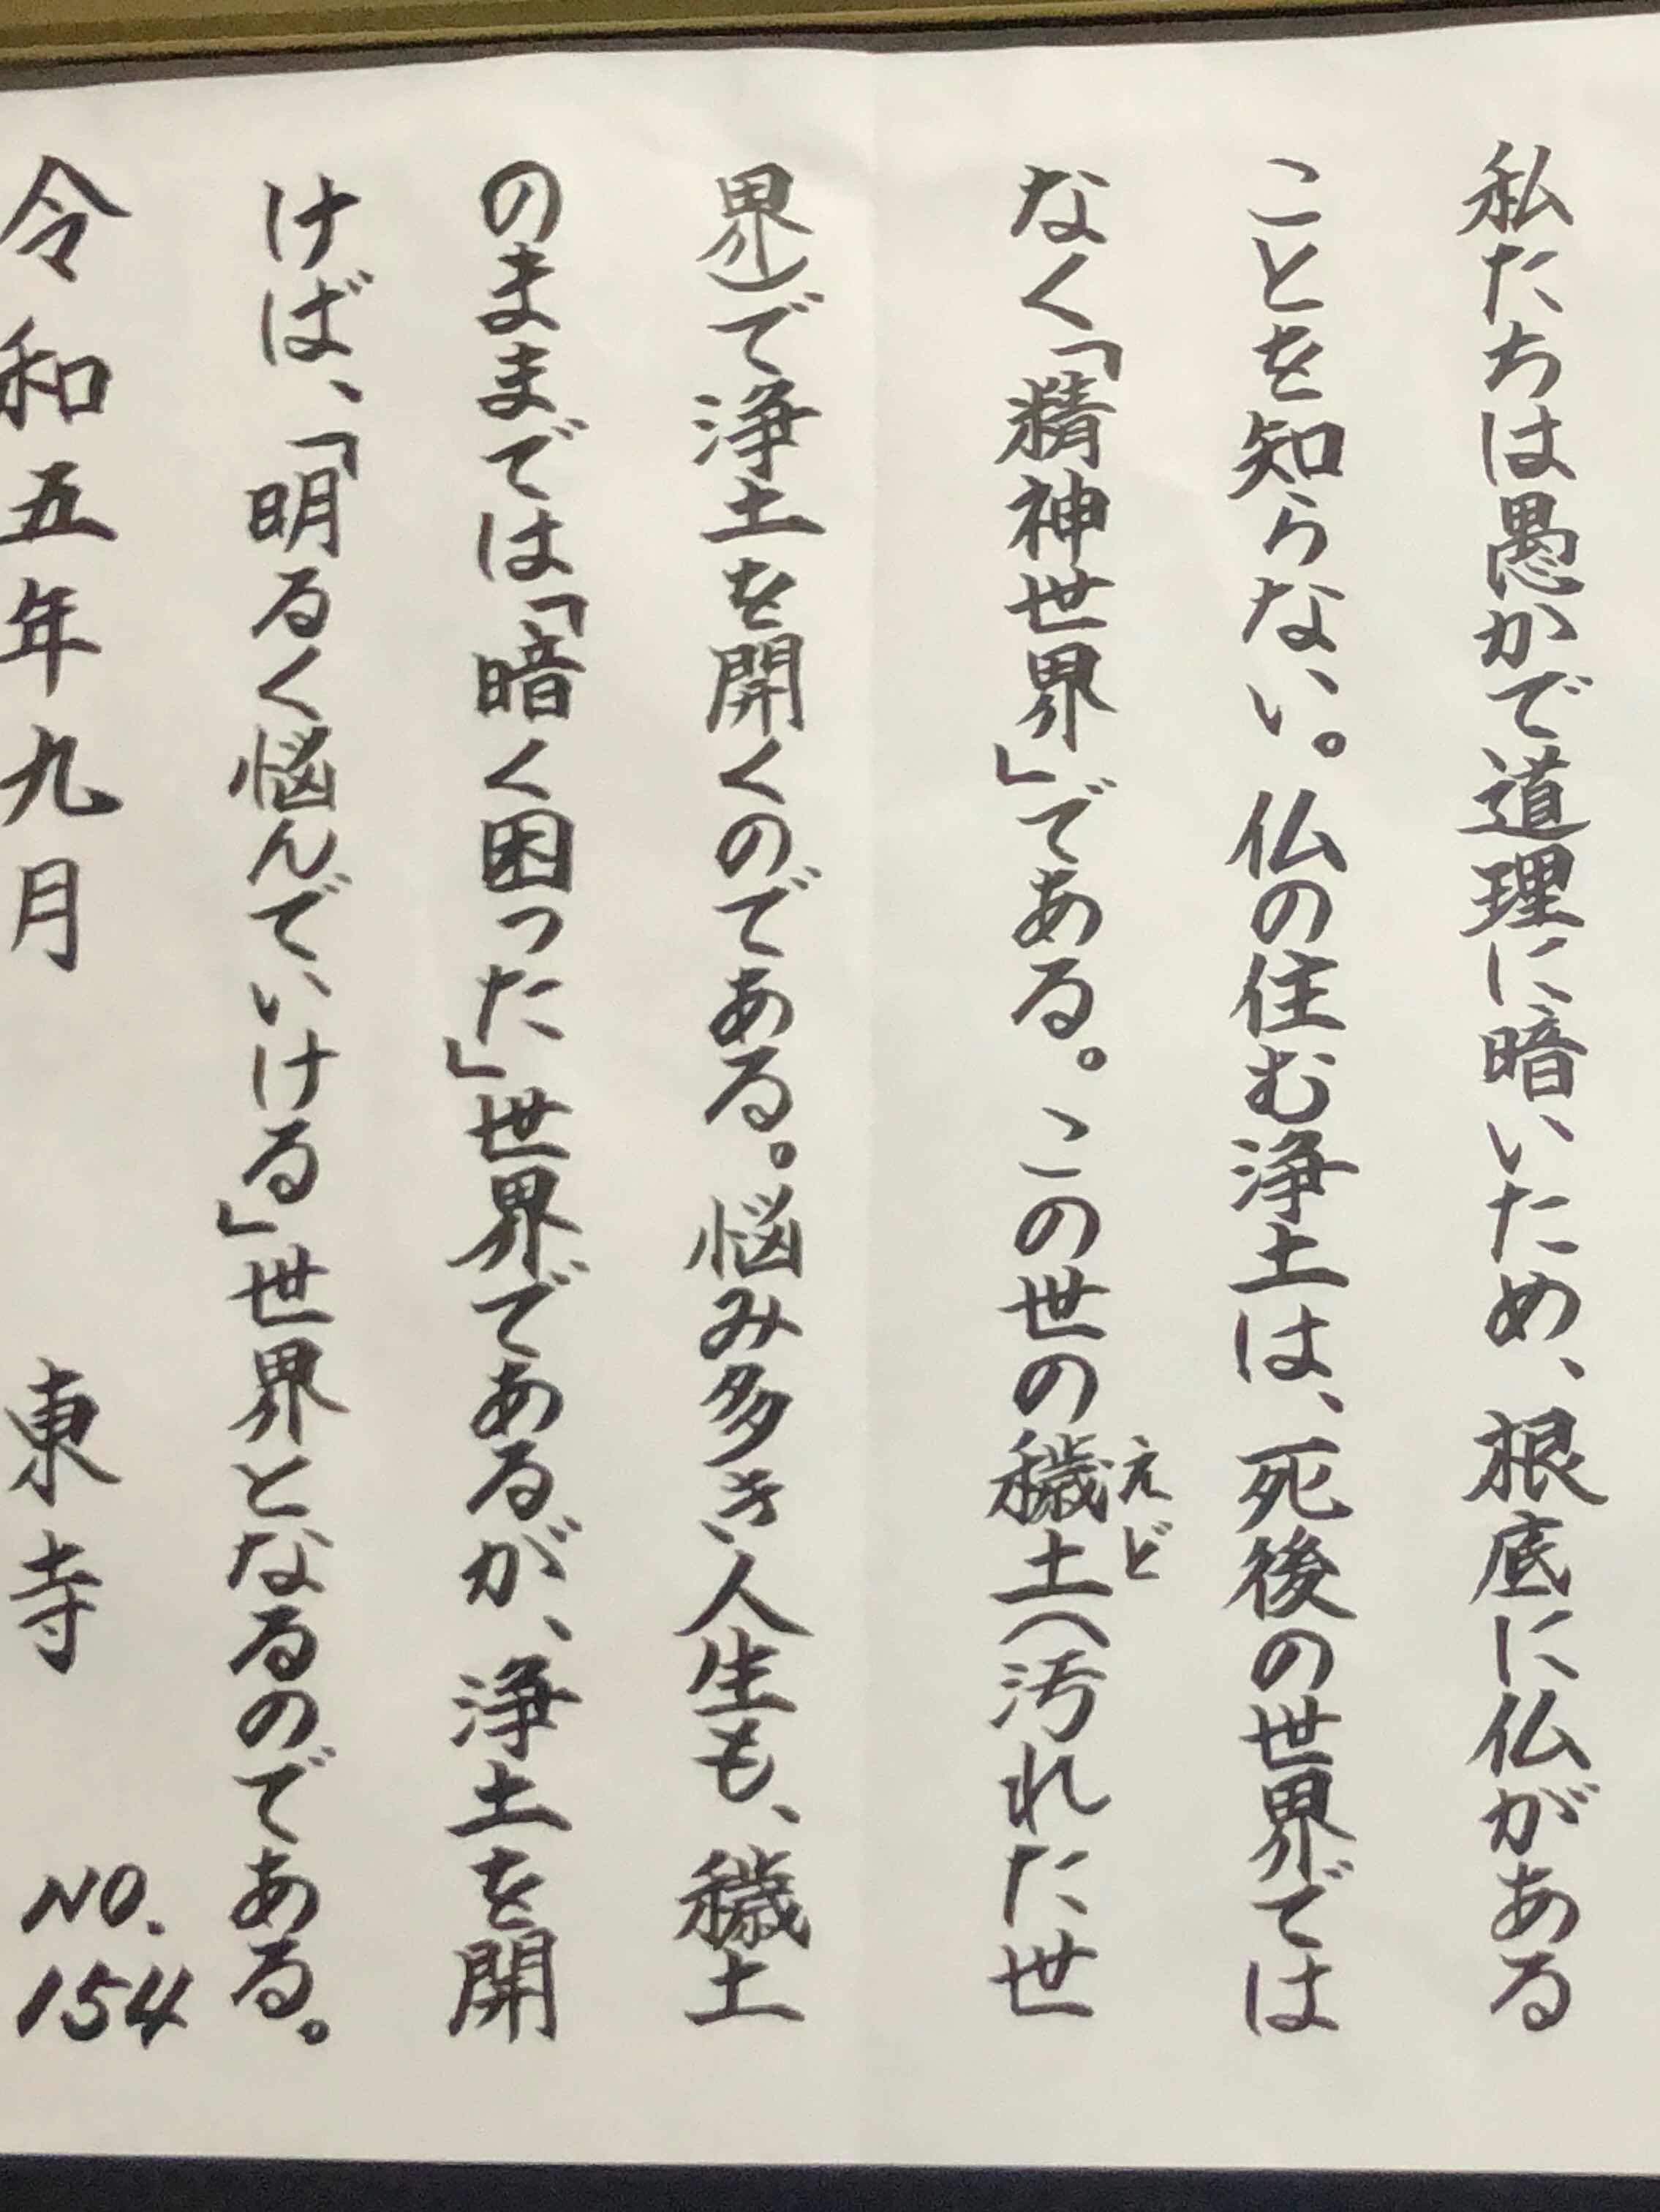 私たちは愚かで道理に暗いため、根底に仏がある
ことを知らない。仏の住む浄土は、死後の世界では
なく「精神世界」である。この世の穢土(汚れた世
えど
界)で浄土を開くのである。悩み多き人生も、穢土
のままでは「暗く困った」世界であるが、浄土を開
けば、「明るく悩んでいける」世界となるのである。
令和五年九月 東寺 NO.154